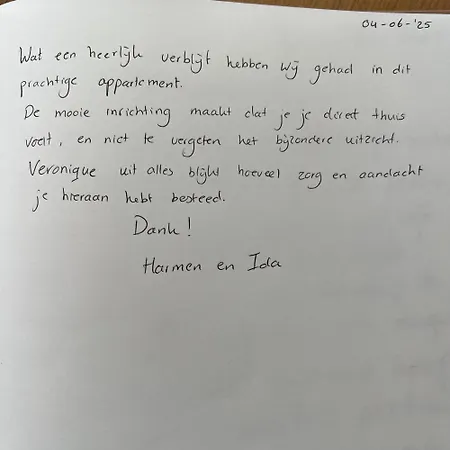 04-06-'25
Wat een heerlijk verblijf hebben wij gehad in dit
prachtige appartement.
De mooie inrichting maakt dat je je direct thuis
voelt, en niet te vergeten het bijzondere uitzicht.
Veronique uit alles blijkt hoeveel zorg en aandacht
je hieraan hebt besteed.
Dank!
Harmen en Ida